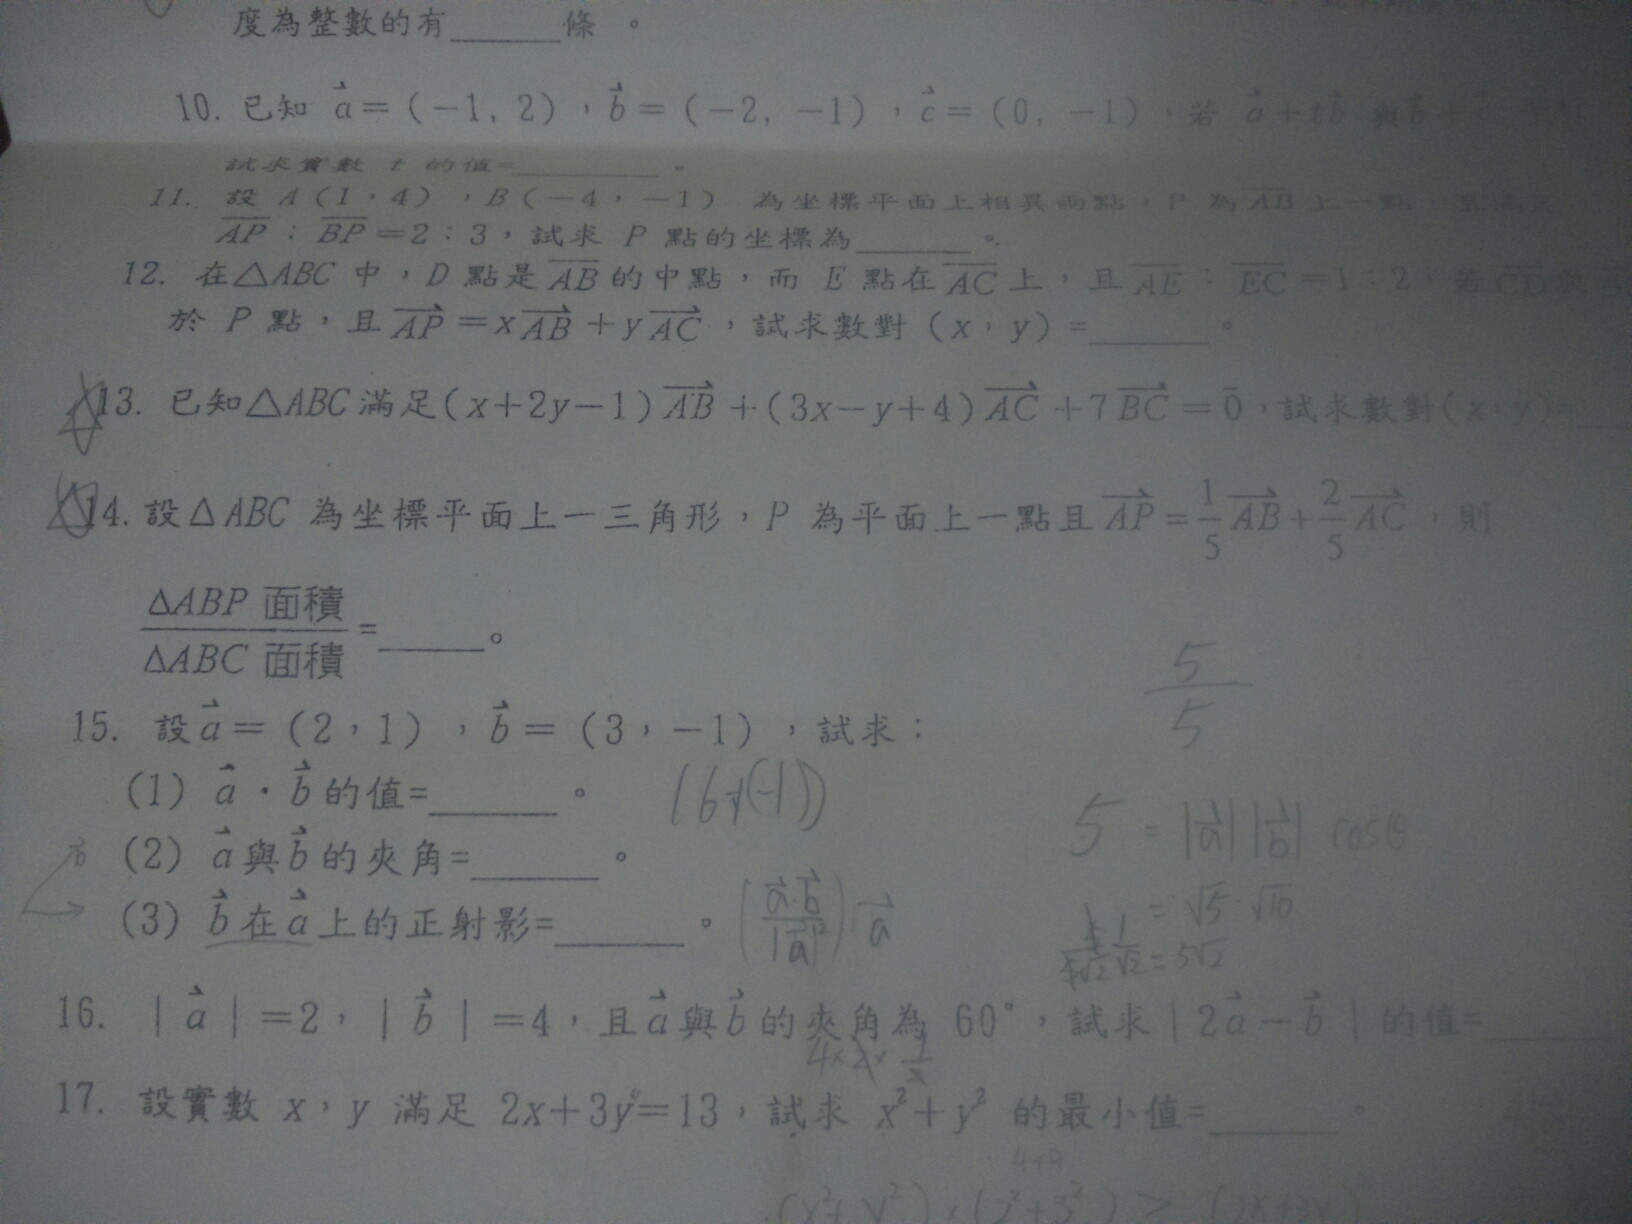 度為整數的有______條 。
10. 已知 a⃗=(-1, 2),b⃗=(-2, -1),c⃗=(0, -1),若 a⃗+tb⃗ 與b⃗+
試求實數 t 的值=________ 。
11. 設 A(1,4),B(-4,-1) 為坐標平面上相異兩點,P 為AB上一點,且滿足
AP:BP=2:3,試求 P 點的坐標為______。
12. 在△ABC 中,D 點是AB的中點,而 E 點在AC上,且AE:EC=1:2,若CD與
於 P 點,且AP=xAB+yAC,試求數對(x,y)=______ 。
13. 已知△ABC滿足(x+2y-1)AB+(3x-y+4)AC+7BC=0,試求數對(x,y)=__
14. 設△ABC 為坐標平面上一三角形,P 為平面上一點且AP=1/5AB+2/5AC,則
△ABP 面積/△ABC 面積=_____。
5/5
15. 設a⃗=(2,1),b⃗=(3,-1),試求:
(1) a⃗·b⃗的值=______ 。 (6+(-1))
5 = |a⃗||b⃗| cosθ
(2) a⃗與b⃗的夾角=______ 。
= √5·√10
(3) b⃗在a⃗上的正射影=______ 。 (a⃗·b⃗/|a⃗|²)a⃗
= 5√2
16. |a⃗|=2,|b⃗|=4,且a⃗與b⃗的夾角為 60°,試求|2a⃗-b⃗|的值=______
17. 設實數 x,y 滿足 2x+3y=13,試求 x²+y² 的最小值=______ 。
4+9
(x²+y²)·(2²+3²) ≥ (2x+3y)